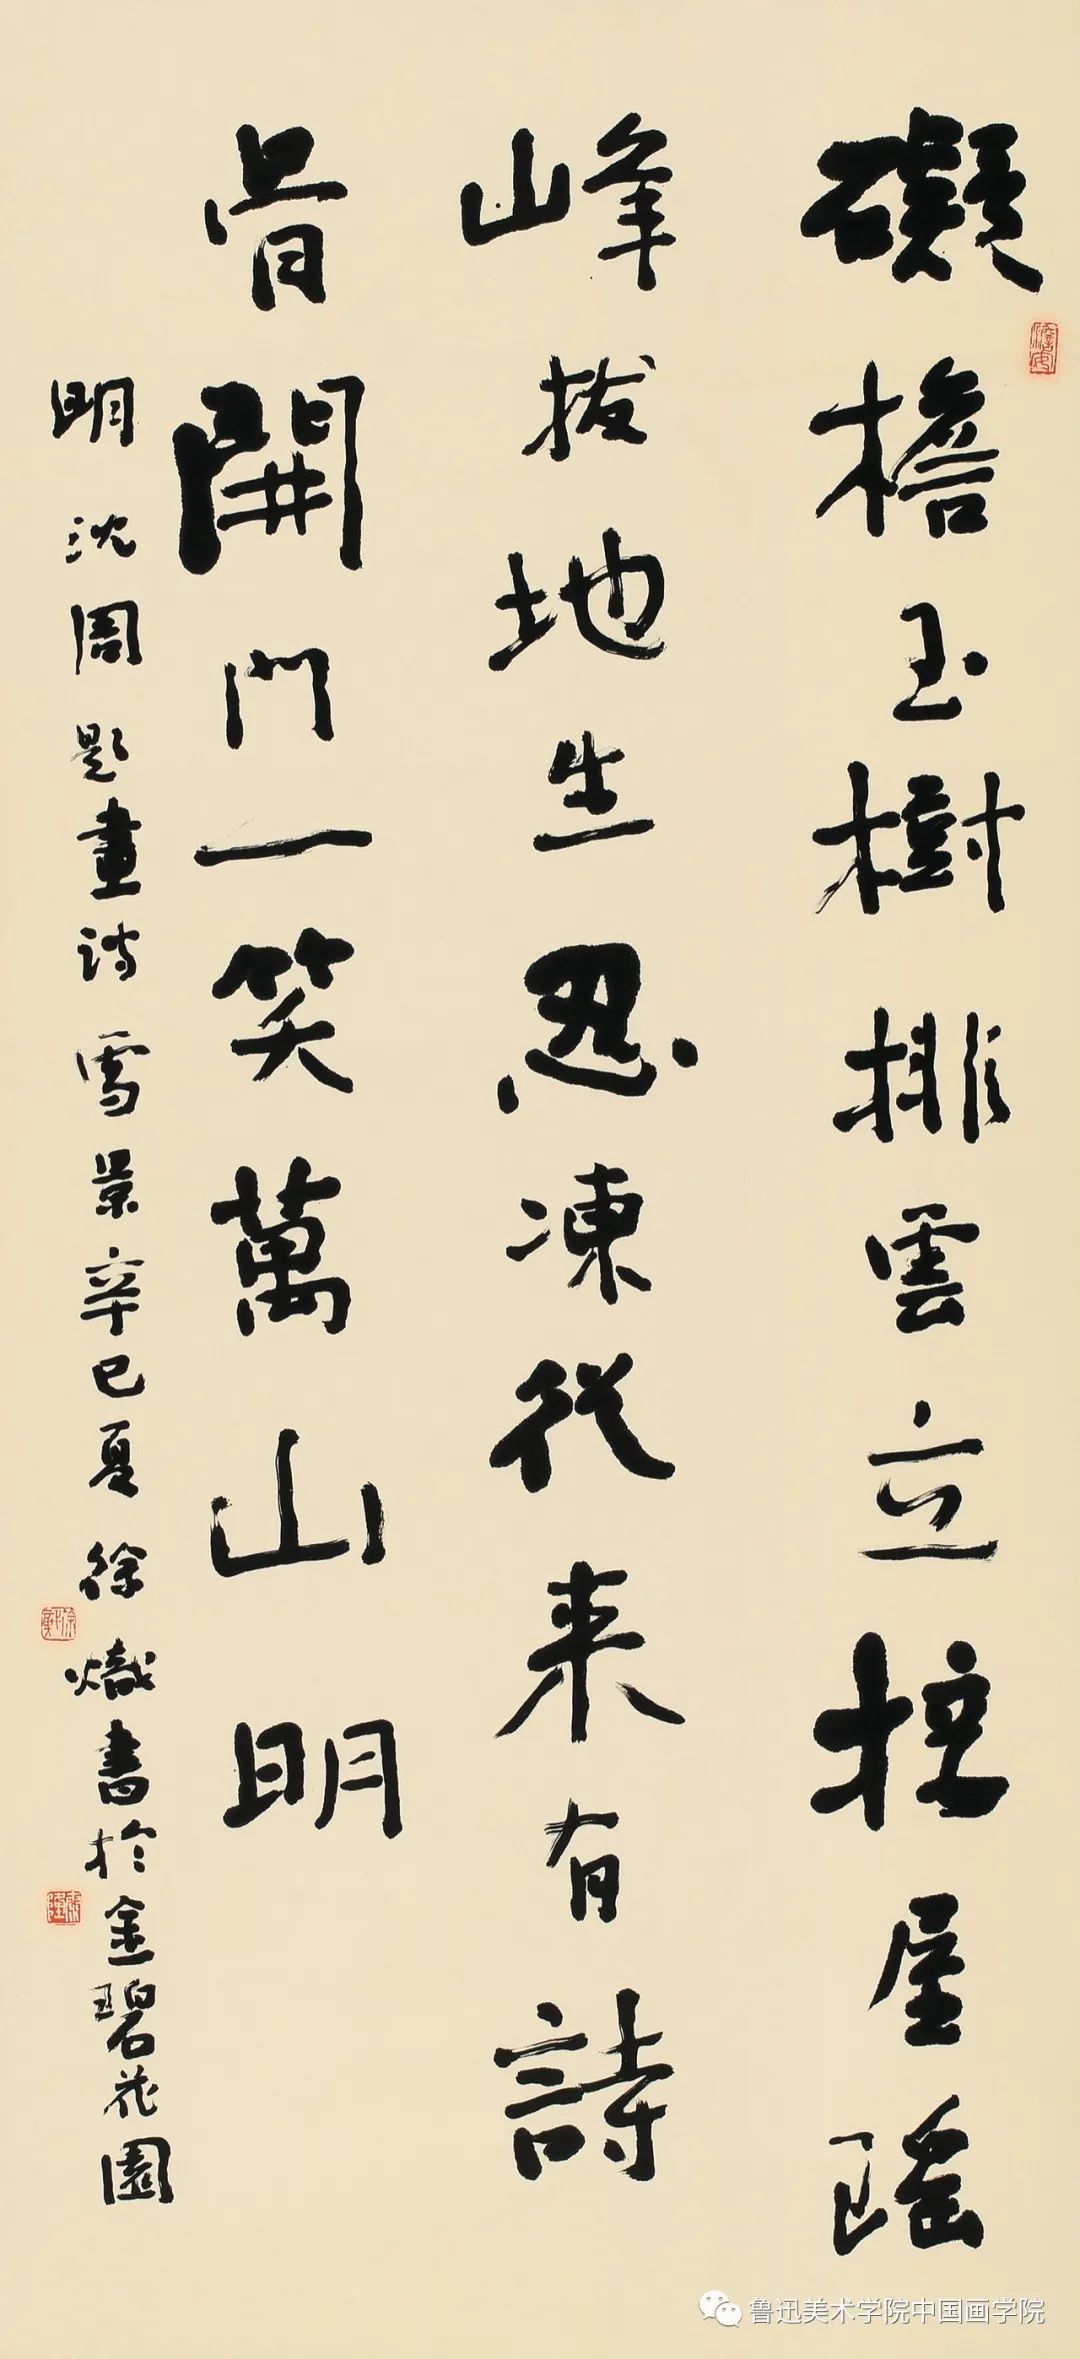 礙檐玉樹排雲立挖屋瑤
峰拔地生忍凍從来有詩
骨開門一笑萬山明
明沈周題畫詩雪景辛巳夏徐熾書於金碧花園
鲁迅美术学院中国画学院